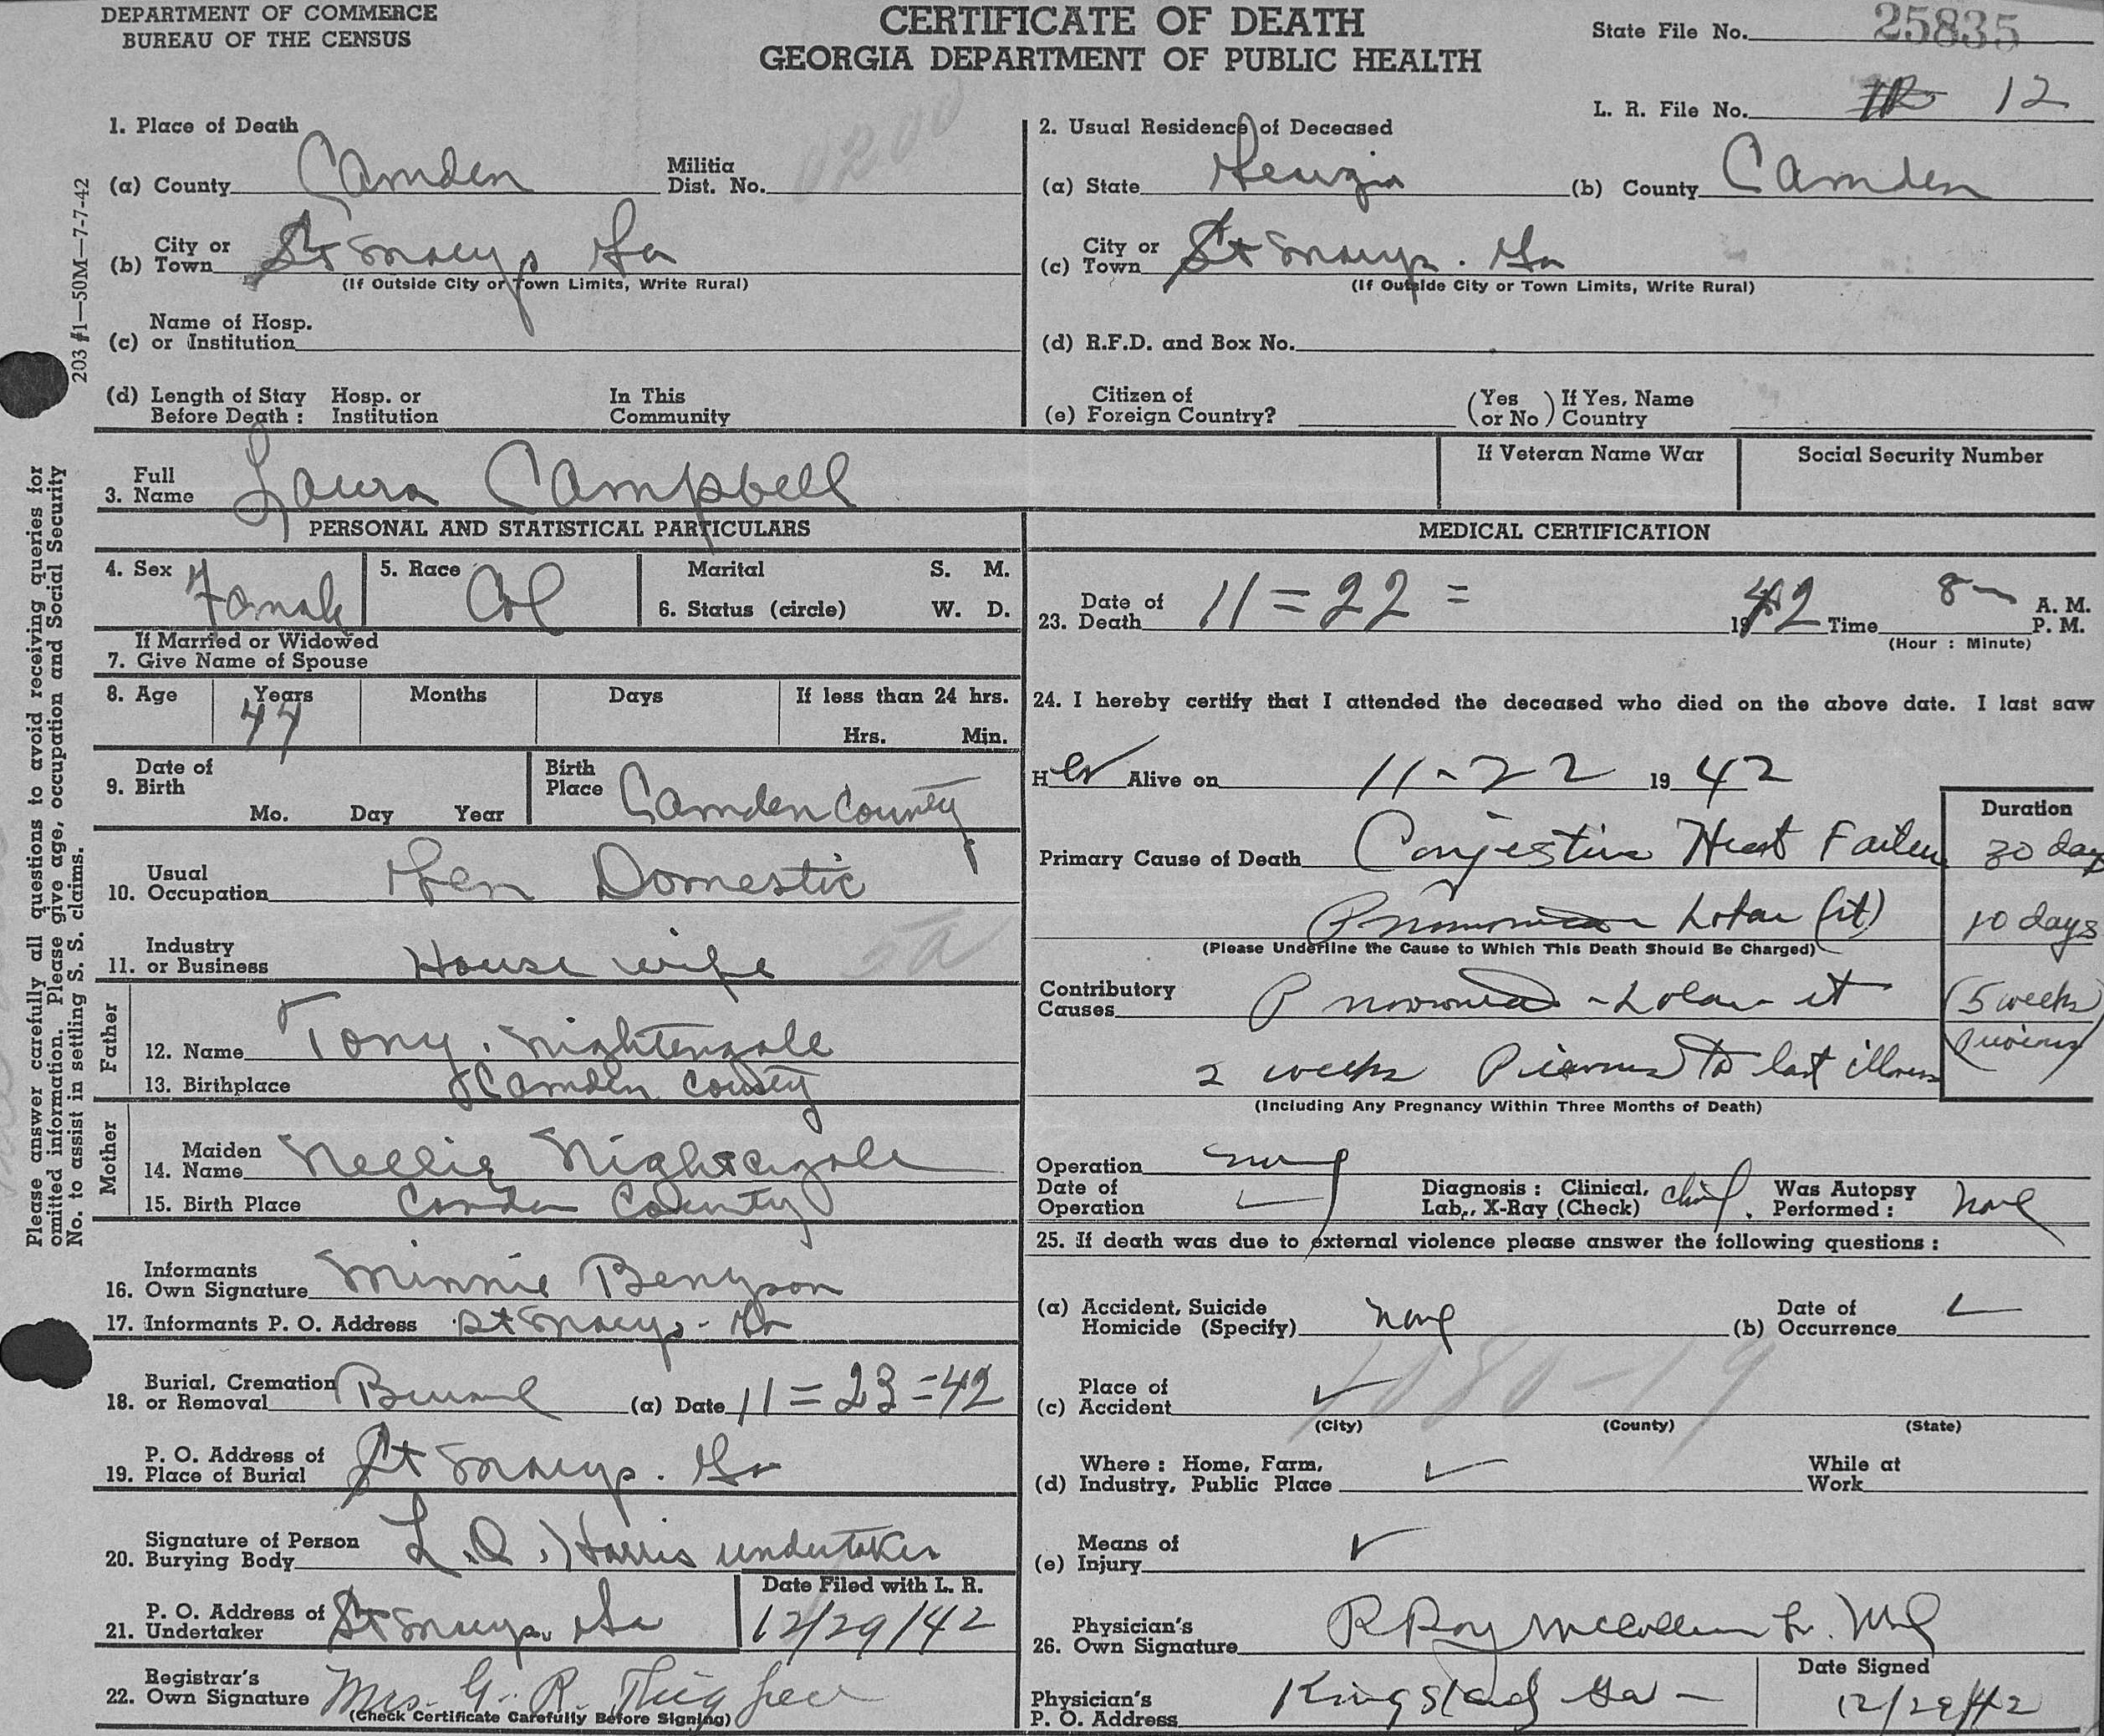 DEPARTMENT OF COMMERCE
BUREAU OF THE CENSUS
CERTIFICATE OF DEATH
GEORGIA DEPARTMENT OF PUBLIC HEALTH
State File No. 25835
L. R. File No. 12
203 #1—50M—7-7-42
Please answer carefully all questions to avoid receiving queries for
omitted information. Please give age, occupation and Social Security
No. to assist in settling S. S. claims.
1. Place of Death
(a) County Camden Militia Dist. No. 0200
(b) City or Town St Marys Ga
(If Outside City or Town Limits, Write Rural)
(c) Name of Hosp. or Institution
(d) Length of Stay Before Death: Hosp. or Institution In This Community
2. Usual Residence of Deceased
(a) State Georgia (b) County Camden
(c) City or Town St Marys. Ga
(If Outside City or Town Limits, Write Rural)
(d) R.F.D. and Box No.
(e) Citizen of Foreign Country? (Yes or No) If Yes, Name Country
3. Full Name Laura Campbell
If Veteran Name War
Social Security Number
PERSONAL AND STATISTICAL PARTICULARS
4. Sex Female 5. Race Col 6. Marital Status (circle) S. M. W. D.
7. If Married or Widowed Give Name of Spouse
8. Age Years 47 Months Days If less than 24 hrs. Hrs. Min.
9. Date of Birth Mo. Day Year Birth Place Camden County
10. Usual Occupation Gen Domestic
11. Industry or Business House wife
Father
12. Name Tony. Nightengale
13. Birthplace Camden County
Mother
14. Maiden Name Nellie Nightengale
15. Birth Place Camden County
16. Informants Own Signature Minnie
17. Informants P. O. Address St Marys - Ga
18. Burial, Cremation or Removal Burial (a) Date 11=23=42
19. P. O. Address of Place of Burial St Marys. Ga
20. Signature of Person Burying Body L. Q. Harris undertaker
21. P. O. Address of Undertaker St Marys Ga
Date Filed with L. R.
12/29/42
22. Registrar's Own Signature Mrs. G. R. Thigpen
(Check Certificate Carefully Before Signing)
MEDICAL CERTIFICATION
23. Date of Death 11=22= 1942 Time 8 A. M. P. M.
(Hour : Minute)
24. I hereby certify that I attended the deceased who died on the above date. I last saw
Her Alive on 11-22 1942
Duration
Primary Cause of Death Congestive Heart Failure 30 days
Pneumonia Lobar (rt) 10 days
(Please Underline the Cause to Which This Death Should Be Charged)
Contributory Causes Pneumonia - Lobar rt (5 weeks
2 weeks Previous to last illness previous)
(Including Any Pregnancy Within Three Months of Death)
Operation none
Date of Operation
Diagnosis: Clinical, Lab., X-Ray (Check) clinical. Was Autopsy Performed: None
25. If death was due to external violence please answer the following questions:
(a) Accident, Suicide Homicide (Specify) none (b) Date of Occurrence
(c) Place of Accident
(City) (County) (State)
(d) Where: Home, Farm, Industry, Public Place While at Work
(e) Means of Injury
26. Physician's Own Signature R Roy McCollum Jr. MD
Physician's P. O. Address Kingsland Ga -
Date Signed
12/29/42